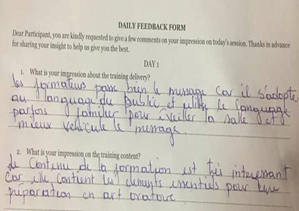 DAILY FEEDBACK FORM
Dear Participant, you are kindly requested to give a few comments on your impression on today's session. Thanks in advance
for sharing your insight to help us give you the best.
DAY 1
1. What is your impression about the training delivery?
les formateurs passe bien le message car il s'adapte
au language du public et utilise le language
parfois familier pour éveiller la salle et
mieux véhiculé le message.
2. What is your impression on the training content?
Le contenu de la formation est très intéressant
car elle contient les éléments essentiels pour une
préparation en art oratoire